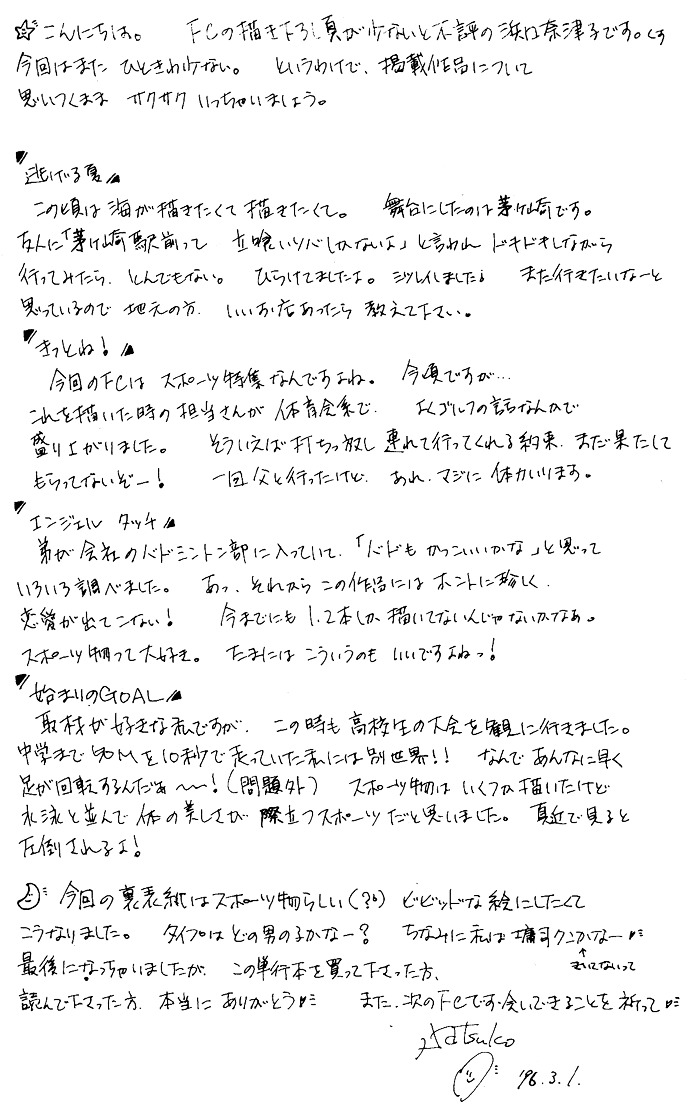 ☆こんにちは。 FCの描き下ろし頁が少ないと不評の浜口奈津子です。くす
今回はまた ひときわ少ない。 というわけで、掲載作品について
思いつくまま サクサク いっちゃいましょう。
"逃げる夏"
この頃は海が描きたくて描きたくて。 舞台にしたのは茅ヶ崎です。
友人に「茅ヶ崎駅前って 立喰いソバしかないよ」と言われ ドキドキしながら
行ってみたら、とんでもない。 ひらけてましたよ。シツレイしました。 また行きたいなーと
思っているので 地元の方、いいお店あったら 教えて下さい。
"きっとね!"
今回のFCは スポーツ特集なんですよね。 今頃ですが…
これを描いた時の担当さんが 体育会系で、 よくゴルフの話なんかで
盛り上がりました。 そういえば打ちっ放し 連れて行ってくれる約束、まだ果たして
もらってないぞー! 一回父と行ったけど、あれ、マジに 体力いります。
"エンジェル タッチ"
弟が会社のバドミントン部に入っていて、「バドも かっこいいかな」と思って
いろいろ調べました。 あっ、それから この作品には ホントに珍しく、
恋愛が出てこない! 今までにも 1、2本しか 描いてないんじゃないかなあ。
スポーツ物って大好き。 たまには こういうのも いいですよねっ!
"始まりのGOAL"
取材が好きな私ですが、この時も 高校生の大会を観に行きました。
中学まで50Mを10秒で走っていた私には別世界!! なんで あんなに早く
足が回転するんだぁ〜〜!(問題外) スポーツ物は いくつか描いたけど
水泳と並んで 体の美しさが 際立つスポーツだと思いました。 真近で見ると
圧倒されるよ!
今回の裏表紙はスポーツ物らしい(?。)ビビッドな絵にしたくて
こうなりました。 タイプはどの男のコかなー? ちなみに私は 墉司クンかなー
きいてないって
最後になっちゃいましたが、この単行本を買って下さった方、
読んで下さった方、本当に ありがとう また、次のFCでお会いできることを 祈って
Natsuko
'96.3.1.